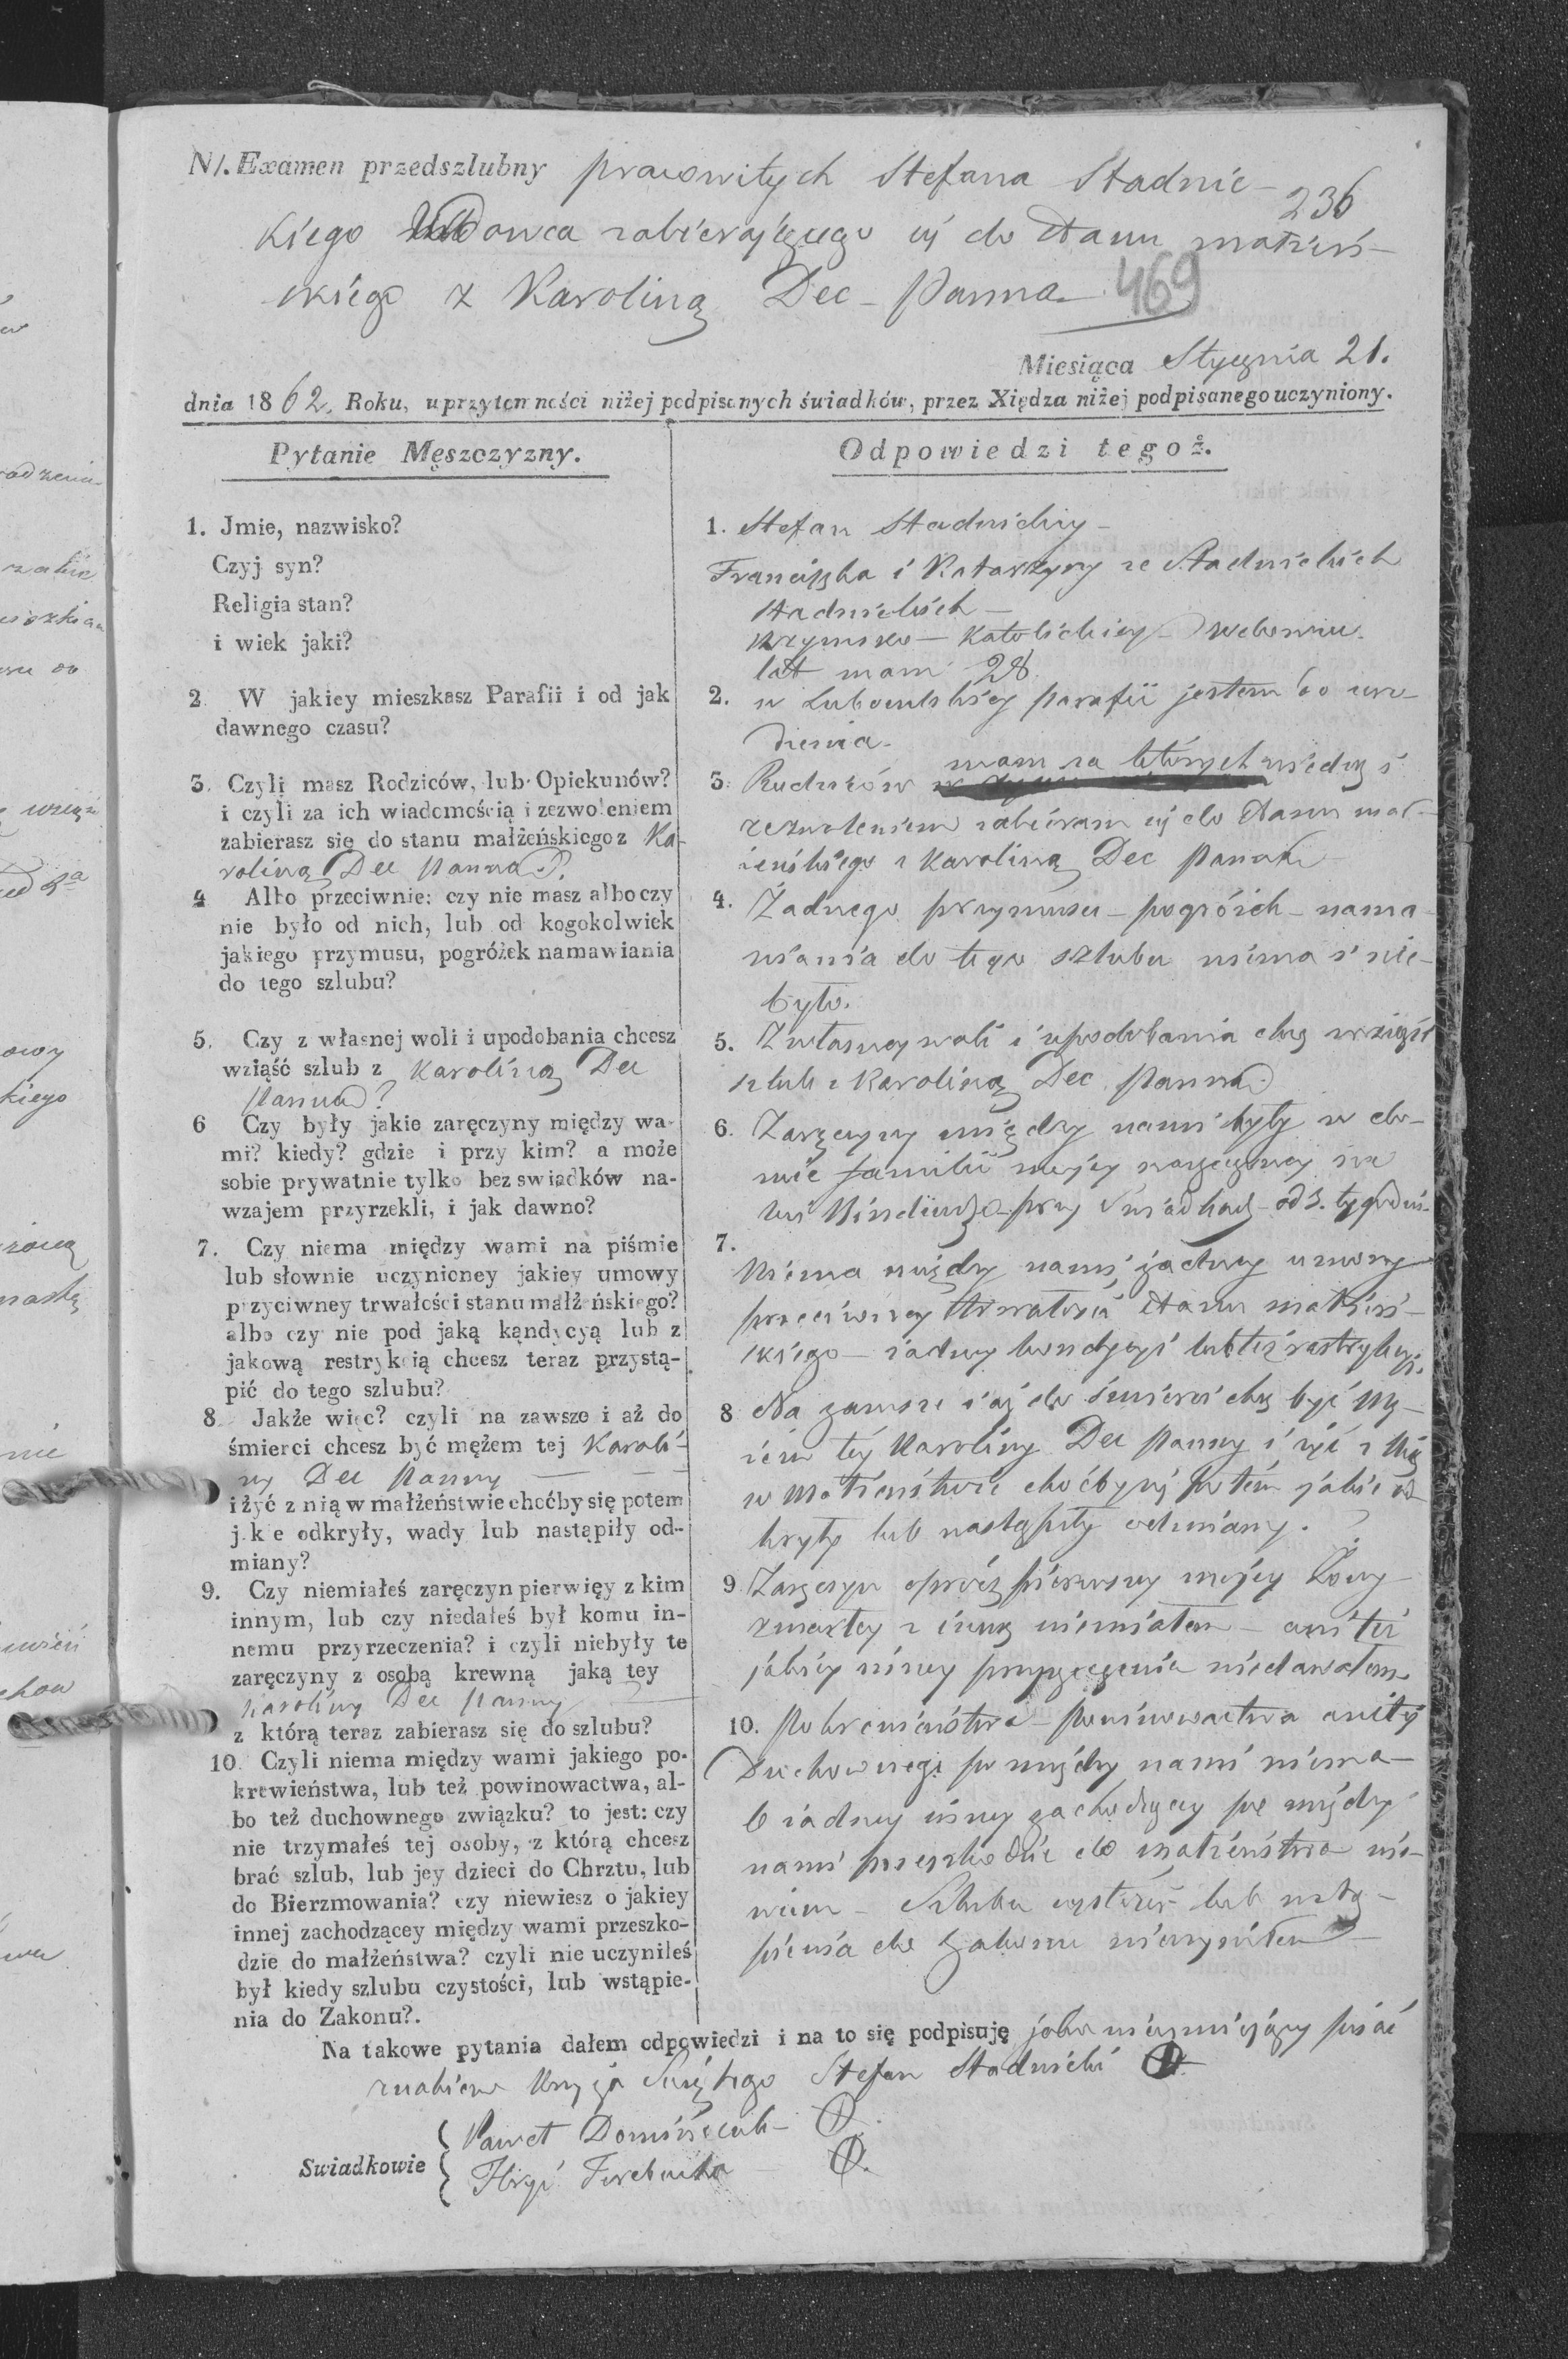 N1. Examen przedszlubny pracowitych Stefana Stadnic-
236
kiego Wdowca zabierającego się do stanu małżeń-
skiego z Karoliną Dec - Panna
469
Miesiąca Stycznia 21.
dnia 1862. Roku, uprzytomności niżej podpisanych świadków, przez Xiędza niżej podpisanego uczyniony.
Pytanie Męszczyzny.
1. Jmie, nazwisko?
Czyj syn?
Religia stan?
i wiek jaki?
2 W jakiey mieszkasz Parafii i od jak
dawnego czasu?
3. Czyli masz Rodziców, lub Opiekunów?
i czyli za ich wiadomością i zezwoleniem
zabierasz się do stanu małżeńskiego z Ka-
roliną Dec Panną?
4 Albo przeciwnie: czy nie masz albo czy
nie było od nich, lub od kogokolwiek
jakiego przymusu, pogróżek namawiania
do tego szlubu?
5. Czy z własnej woli i upodobania chcesz
wziąść szlub z Karoliną Dec
Panną?
6 Czy były jakie zaręczyny między wa-
mi? kiedy? gdzie i przy kim? a może
sobie prywatnie tylko bez swiadków na-
wzajem przyrzekli, i jak dawno?
7. Czy niema między wami na piśmie
lub słownie uczynioney jakiey umowy
przyciwney trwałości stanu małżeńskiego?
albo czy nie pod jaką kąndycyą lub z
jakową restrykcią chcesz teraz przystą-
pić do tego szlubu?
8. Jakże więc? czyli na zawsze i aż do
śmierci chcesz być mężem tej Karoli-
ny Dec Panny
i żyć z nią w małżeństwie choćby się potem
jakie odkryły, wady lub nastąpiły od-
miany?
9. Czy niemiałeś zaręczyn pierwięy z kim
innym, lub czy niedałeś był komu in-
nemu przyrzeczenia? i czyli niebyły te
zaręczyny z osobą krewną jaką tey
Karoliny Dec Panny
z którą teraz zabierasz się do szlubu?
10. Czyli niema między wami jakiego po-
krewieństwa, lub też powinowactwa, al-
bo też duchownego związku? to jest: czy
nie trzymałeś tej osoby, z którą chcesz
brać szlub, lub jey dzieci do Chrztu, lub
do Bierzmowania? czy niewiesz o jakiey
innej zachodzącey między wami przeszko-
dzie do małżeństwa? czyli nie uczyniłeś
był kiedy szlubu czystości, lub wstąpie-
nia do Zakonu?.
Odpowiedzi tegoż.
1. Stefan Stadnicki -
Franciszka i Katarzyny ze Stadnickich
Stadnickich -
Rzymsko - Katolickiey
lat mam 28
2. w parafii jestem od uro-
dzenia.
mam za których wiedzą i
3. Rodziców
zezwoleniem zabieram się do stanu mał-
żeńskiego z Karoliną Dec Panną
4. Żadnego przymusu - pogróżek - nama-
wiania do tego szlubu niema i nie-
było.
5. Z własney woli i upodobania chcę wziąść
szlub z Karoliną Dec Panną.
6. Zaręczyny między nami były w do-
mie familii mojey narzeczoney
przy Swiadkach - od 3. tygodni.
7.
Niema między nami żadney umowy
przeciwney trwałości stanu małżeń-
skiego - żadney kondycyi lub też restrykcyi.
8 Na zawsze i aż do śmierci chcę być Mę-
żem tey Karoliny Dec Panny i żyć z Nią
w Małżeństwie choćby się potem jakie od-
kryły lub nastąpiły odmiany.
9 Zaręczyn oprócz pierwszey mojey Żony
zmarłey z inną niemiałem - ani też
jakiey inney przyrzeczenia niedawałem.
10. Pokrewieństwa - powinowactwa ani też
Duchownego pomiędzy nami niema -
O żadney inney zachodzącey po między
nami przeszkodzie do małżeństwa nie-
wiem - Szlubu czystości lub wstą-
pienia do Zakonu nieczyniłem
Na takowe pytania dałem odpowiedzi i na to się podpisuję jako nieumiejący pisać
znakiem Krzyża Świętego Stefan Stadnicki
Swiadkowie
Paweł
Hryć